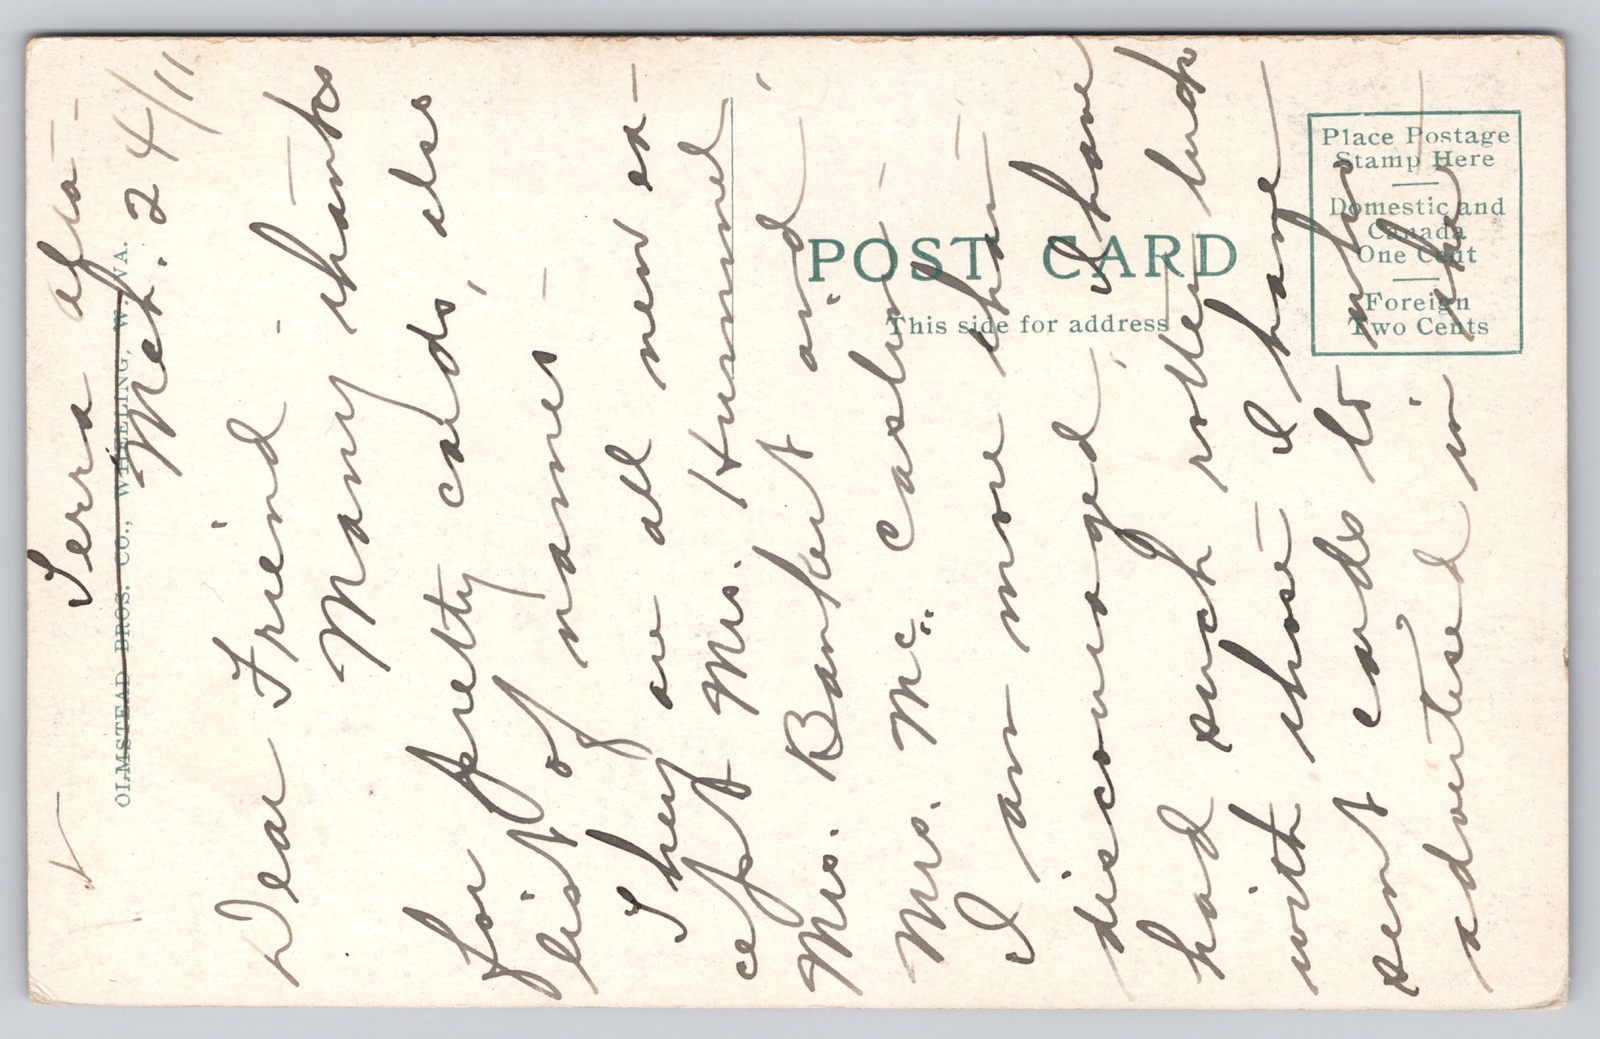 Serra Alta -
Mch. 24/11
Dear Friend -
Many thanks
for pretty cards, also
list of names -
They are all new ex-
cept Mrs. Hummel,
Mrs. Bankert and
Mrs. Mc. Caslin -
I am more than
discouraged, I have
had such rotten luck
with those I have
sent cards to who
advertised in the
OLMSTEAD BROS. CO., WHEELING, W. VA.
POST CARD
This side for address
Place Postage
Stamp Here
Domestic and
Canada
One Cent
Foreign
Two Cents